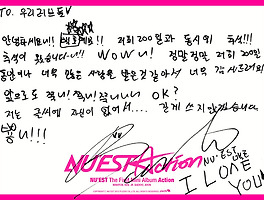 TO. 우리 러브들♥
안녕하세요!! 백호예요!! 저희 200일과 동시에 추석!!
추석이 왔습니다~!! WOW! 정말정말 저희 200일
동안 너무 많은 사랑을 받은것 같아서 너무 감사드리고
앞으로도 쭉~! 쭉~! OK?
저는 글씨에 자신이 없어서.... 길게 쓰지 않겠습니다
뿅!!!
NU'EST Action
NU'EST The First Mini Album Action
NU'EST
I LOVE
YOU